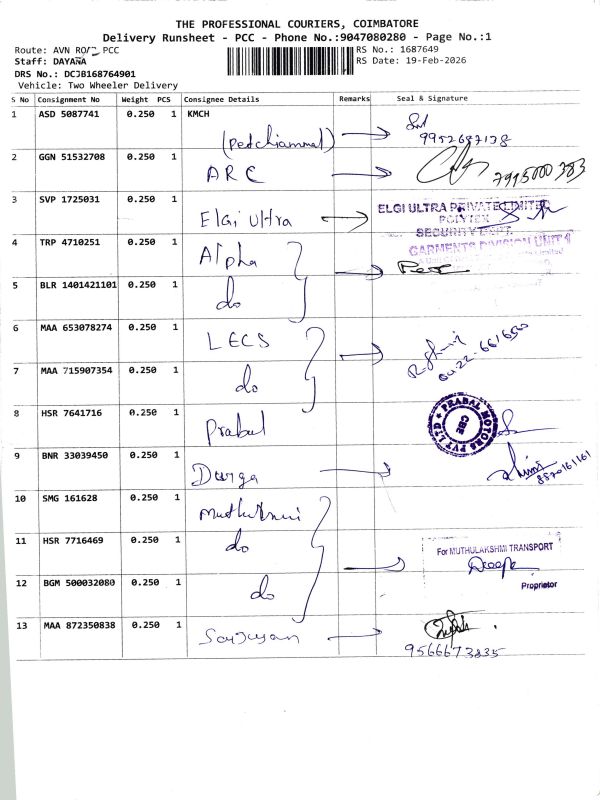 THE PROFESSIONAL COURIERS, COIMBATORE
Delivery Runsheet - PCC - Phone No.:9047080280 - Page No.:1
Route: AVN ROAD PCC RS No.: 1687649
Staff: DAYANA RS Date: 19-Feb-2026
DRS No.: DCJB168764901
Vehicle: Two Wheeler Delivery
S No Consignment No Weight PCS Consignee Details Remarks Seal & Signature
1 ASD 5087741 0.250 1 KMCH
(Petchiammal) 9952687138
2 GGN 51532708 0.250 1 ARC 7995000 383
3 SVP 1725031 0.250 1 Elgi Ultra ELGI ULTRA PRIVATE LIMITED
SECURITY DEPT.
4 TRP 4710251 0.250 1 Alpha GARMENTS DIVISION UNIT 1
5 BLR 1401421101 0.250 1 do
6 MAA 653078274 0.250 1 LECS
7 MAA 715907354 0.250 1 do
8 HSR 7641716 0.250 1 Prabal PRABAL MOTORS PVT LTD CBE
9 BNR 33039450 0.250 1 Durga 8870161161
10 SMG 161628 0.250 1 Muthulaxmi
11 HSR 7716469 0.250 1 do For MUTHULAKSHMI TRANSPORT
Deepa
12 BGM 500032080 0.250 1 do Proprietor
13 MAA 872350838 0.250 1
9566673835